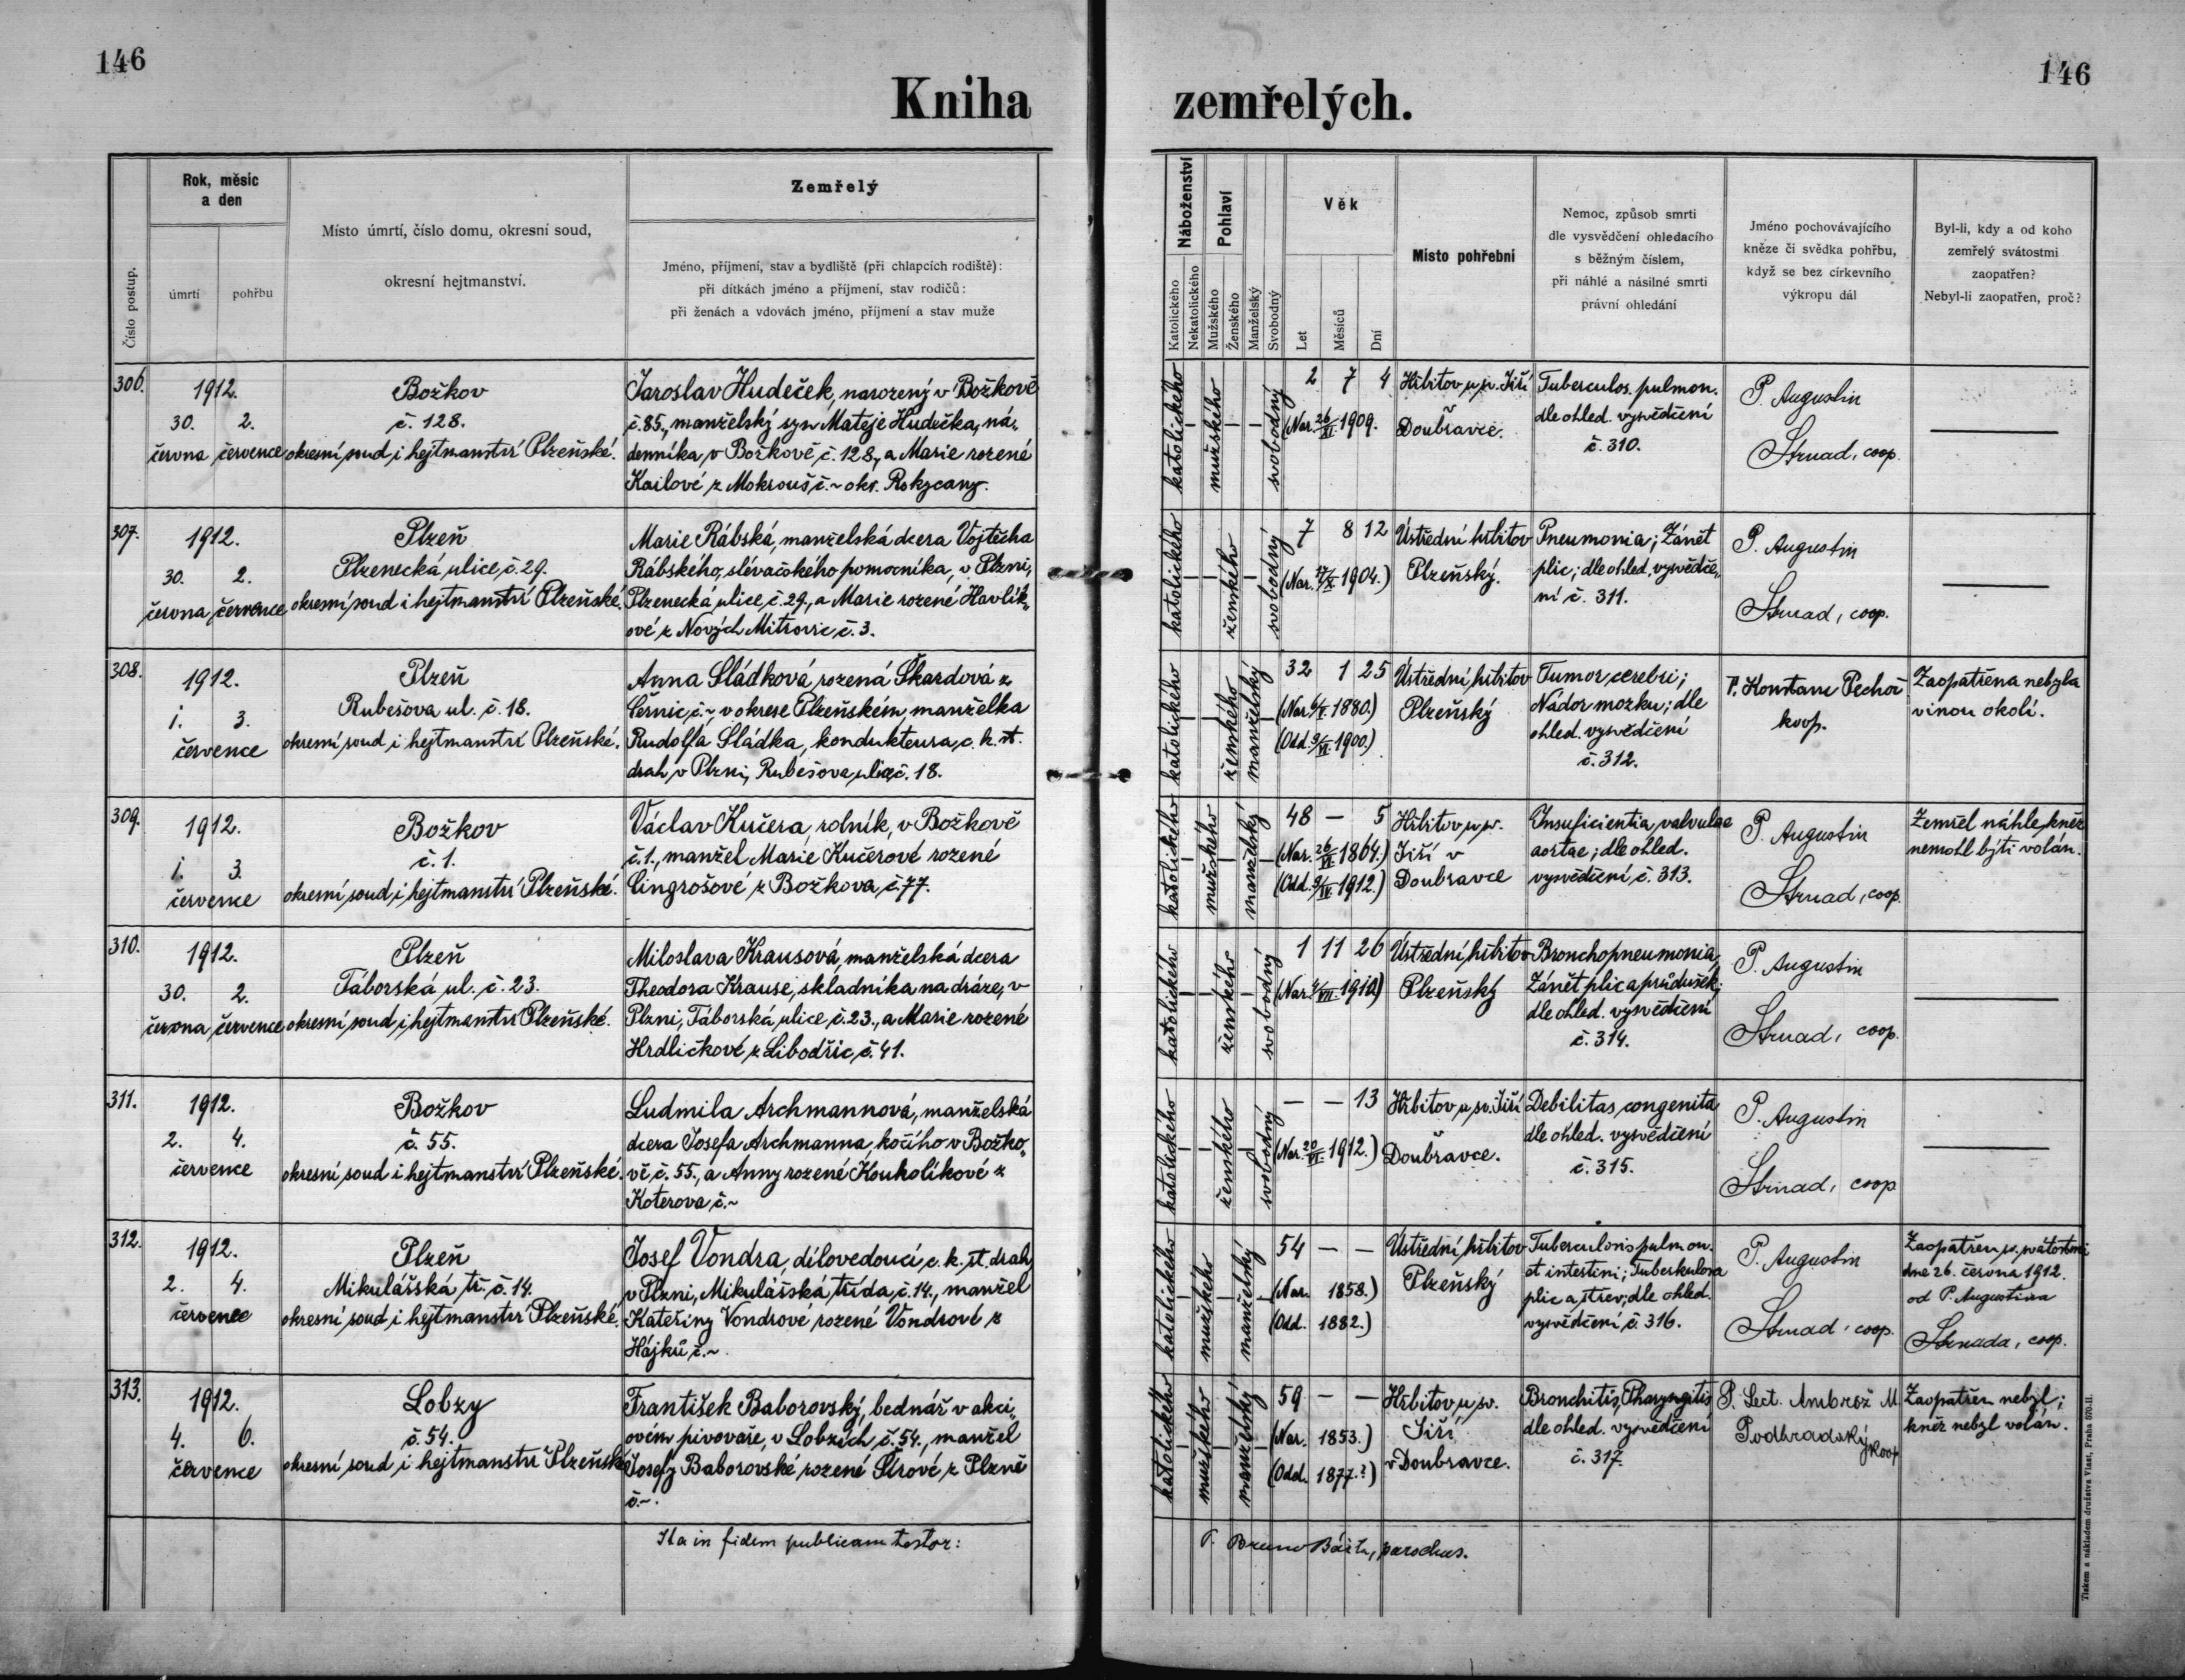 146
146
Kniha zemřelých.
Číslo postup.
Rok, měsíc
a den
úmrtí
pohřbu
Místo úmrtí, číslo domu, okresní soud,
okresní hejtmanství.
Zemřelý
Jméno, příjmení, stav a bydliště (při chlapcích rodiště):
při dítkách jméno a příjmení, stav rodičů:
při ženách a vdovách jméno, příjmení a stav muže
Náboženství
Katolického
Nekatolického
Pohlaví
Mužského
Ženského
Manželský
Svobodný
Věk
Let
Měsíců
Dní
Místo pohřební
Nemoc, způsob smrti
dle vysvědčení ohledacího
s běžným číslem,
při náhlé a násilné smrti
právní ohledání
Jméno pochovávajícího
kněze či svědka pohřbu,
když se bez církevního
výkropu dál
Byl-li, kdy a od koho
zemřelý svátostmi
zaopatřen?
Nebyl-li zaopatřen, proč?
306.
1912.
30. 2.
června července
Božkov
č. 128.
okresní soud i hejtmanství Plzeňské.
Jaroslav Hudeček, narozený v Božkově
č. 85., manželský syn Matěje Hudečka, ná-
denníka, v Božkově č. 128., a Marie rozené
Kailové z Mokrouš č. ~ okr. Rokycany.
katolického
—
mužského
—
—
svobodný
2 7 4
(Nar. 26/XI. 1909.
Hřbitov u sv. Jiří
Doubravce.
Tuberculos. pulmon.
dle ohled. vysvědčení
č. 310.
P. Augustin
Strnad, coop.
—
307.
1912.
30. 2.
června července
Plzeň
Plzenecká ulice, č. 29.
okresní soud i hejtmanství Plzeňské.
Marie Rábská, manželská dcera Vojtěcha
Rábského, slévačského pomocníka, v Plzni,
Plzenecká ulice, č. 29., a Marie rozené Havlík-
ové z Nových Mitrovic č. 3.
katolického
—
—
ženského
—
svobodný
7 8 12
(Nar. 17/X. 1904.)
Ústřední hřbitov
Plzeňský.
Pneumonia; Zánět
plic; dle ohled. vysvědče-
ní č. 311.
P. Augustin
Strnad, coop.
—
308.
1912.
1. 3.
července
Plzeň
Rubešova ul. č. 18.
okresní soud i hejtmanství Plzeňské.
Anna Sládková, rozená Škardová z
Černic, č. ~, v okrese Plzeňském, manželka
Rudolfa Sládka, kondukteura, c. k. st.
drah, v Plzni, Rubešova ulice č. 18.
katolického
—
—
ženského
manželský
—
32 1 25
(Nar. 6/V. 1880.)
(Odd. 9/VI. 1900.)
Ústřední hřbitov
Plzeňský
Tumor cerebri;
Nádor mozku; dle
ohled. vysvědčení
č. 312.
P. Konstanc Pechoč
koop.
Zaopatřena nebyla
vinou okolí.
309.
1912.
1. 3.
července
Božkov
č. 1.
okresní soud i hejtmanství Plzeňské.
Václav Kučera, rolník, v Božkově
č. 1., manžel Marie Kučerové rozené
Cingrošové z Božkova, č. 77.
katolického
—
mužského
—
manželský
—
48 — 5
(Nar. 26/VI. 1864.)
1912.)
Hřbitov u sv.
Jiří v
Doubravce
Insuficientia valvulae
aortae; dle ohled.
vysvědčení č. 313.
P. Augustin
Strnad, coop.
Zemřel náhle, kněz
nemohl býti volán.
310.
1912.
30. 2.
června července
Plzeň
Táborská ul. č. 23.
okresní soud i hejtmanství Plzeňské.
Miloslava Krausová, manželská dcera
Theodora Krause, skladníka na dráze, v
Plzni, Táborská ulice č. 23., a Marie rozené
Hrdličkové z Libodřic, č. 41.
katolického
—
—
ženského
—
svobodný
1 11 26
(Nar. 4/VII. 1910.)
Ústřední hřbitov
Plzeňský
Bronchopneumonia,
Zánět plic a průdušek;
dle ohled. vysvědčení
č. 314.
P. Augustin
Strnad, coop.
—
311.
1912.
2. 4.
července
Božkov
č. 55.
okresní soud i hejtmanství Plzeňské.
Ludmila Archmannová, manželská
dcera Josefa Archmanna, kočího v Božko-
vě č. 55., a Anny rozené Koukolíkové z
Koterova č. ~
katolického
—
—
ženského
—
svobodný
— — 13
(Nar. 20/VI. 1912.)
Hřbitov u sv. Jiří
Doubravce.
Debilitas congenita
dle ohled. vysvědčení
č. 315.
P. Augustin
Strnad, coop
—
312.
1912.
2. 4.
července
Plzeň
Mikulášská tř. č. 14.
okresní soud i hejtmanství Plzeňské.
Josef Vondra, dílovedoucí c. k. st. drah
v Plzni, Mikulášská třída, č. 14., manžel
Kateřiny Vondrové rozené Vondrové z
Hájků č. ~.
katolického
—
mužského
—
manželský
—
54 — —
(Nar. 1858.)
(Odd. 1882.)
Ústřední hřbitov
Plzeňský
Tuberculosis pulmon.
et intestini; Tuberkulosa
plic a střev; dle ohled.
vysvědčení, č. 316.
P. Augustin
Strnad, coop.
Zaopatřen sv. svátostmi
dne 26. června 1912.
od P. Augustina
Strnada, coop.
313.
1912.
4. 6.
července
Lobzy
č. 54.
okresní soud i hejtmanství Plzeňské
František Baborovský, bednář v akci-
ovém pivovaře, v Lobzích, č. 54., manžel
Josefy Baborovské, rozené Sírové z Plzně
č. ~.
katolického
—
mužského
—
manželský
—
59 — —
(Nar. 1853.)
(Odd. 1877.?)
Hřbitov u sv.
Jiří
v Doubravce.
Bronchitis, Pharyngitis
dle ohled. vysvědčení
č. 317.
P. Lect. Ambrož M.
Podhradský
koop
Zaopatřen nebyl;
kněz nebyl volán.
Ita in fidem publicam testor:
P. Bruno parochus.
Tiskem a nákladem družstva Vlast, Praha 570-II.